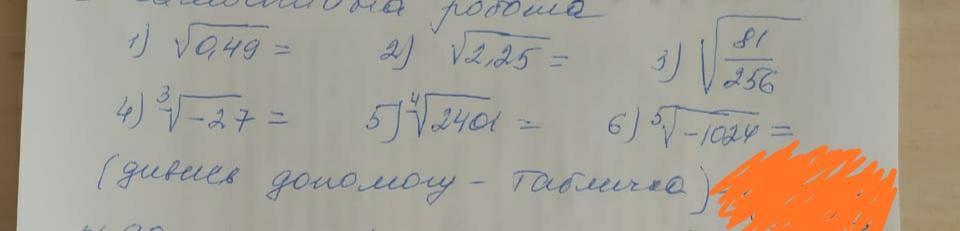 самостійна робота
1) √0,49 = 2) √2,25 = 3) √81/256
4) ³√-27 = 5) ⁴√2401 = 6) ⁵√-1024 =
(дивись допомогу - табличка)